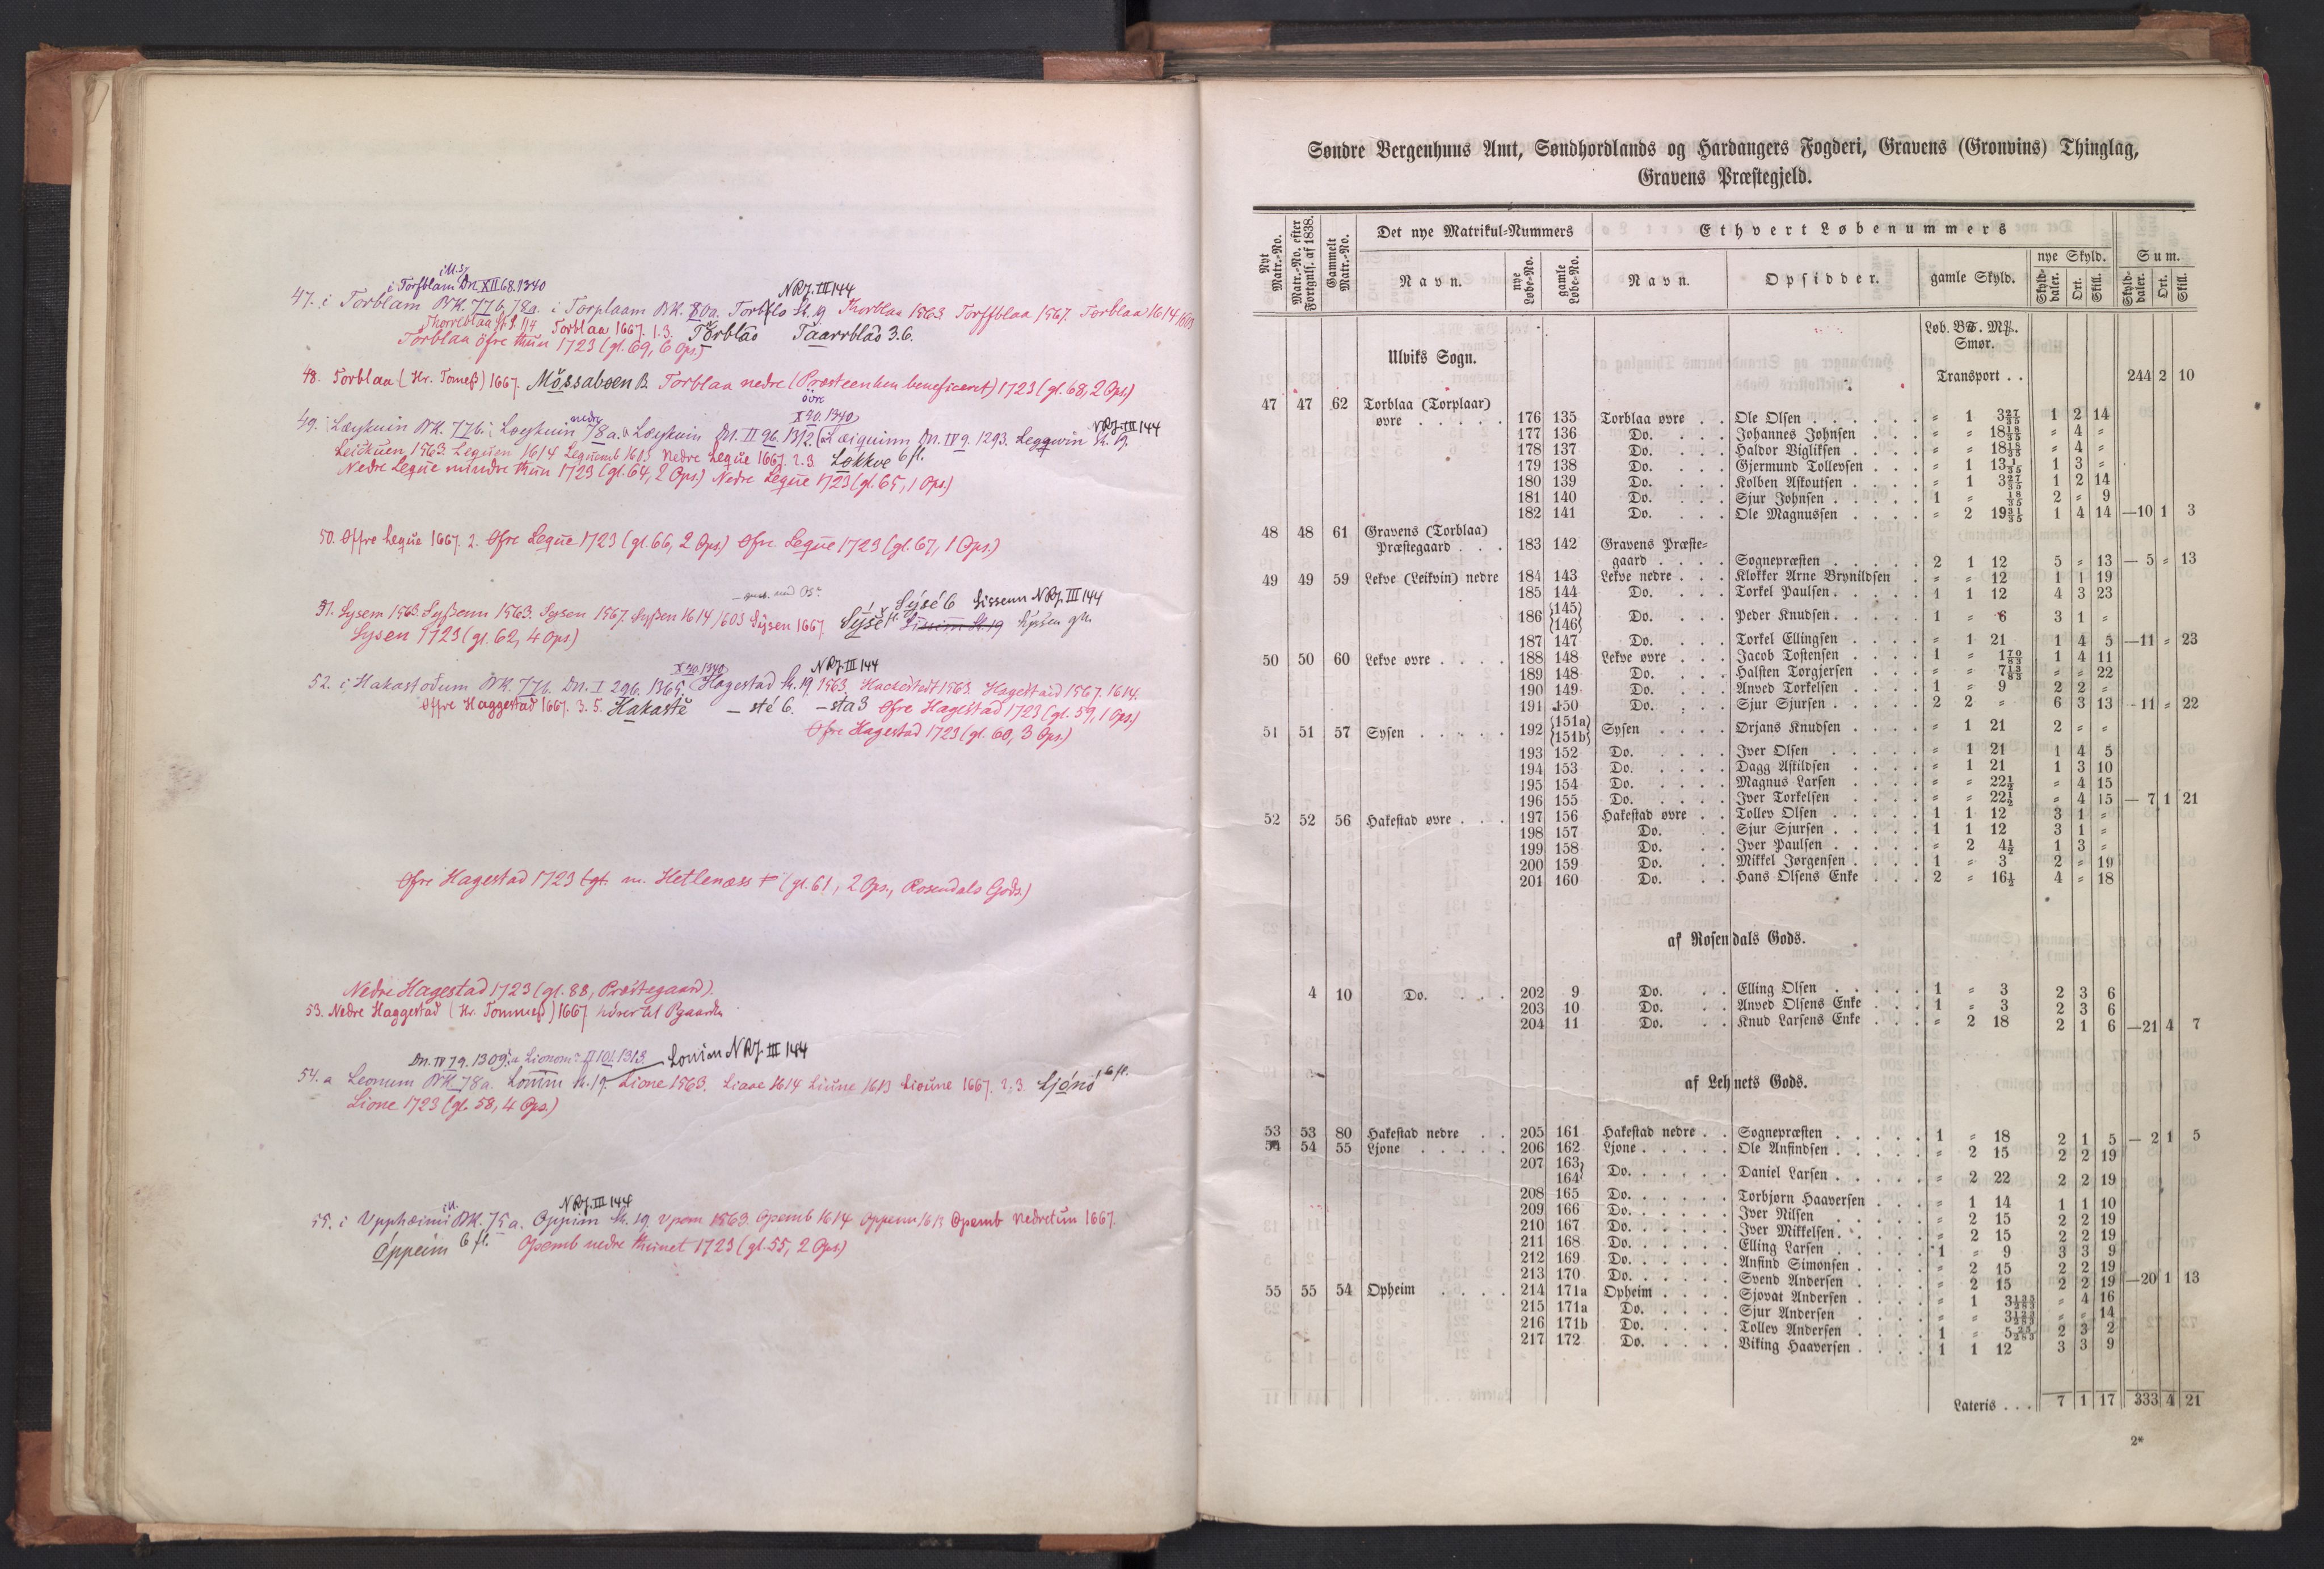 i Torfblam Dn. XII 68. 1340
NRJ. III 144
47. i Torblam BK. 77b, 78a. i Torplaam BK. 80a. Torbflo St. 19 Thorblaa 1563 Torffblaa 1567. Torblaa 1614 1603
Torblaa 1667. 1. 3. Törblao Taarrblao 3.6.
Torblaa öfre thun 1723 (gl. 69, 6 Ops.)
48. Torblaa (Hr. Tomeß) 1667. Mössaboen B. Torblaa nedre (Præsteenken beneficeret) 1723 (gl. 68, 2 Ops.)
nedre
övre
X 90. 1340
NRJ. III 144
49. i Læykuin BK. 77b. i Loykuin 78a. a Læykuin Dn. II 96. 1312. Læiquinn Dn. IV 9. 1293. Leggwin St. 19.
Leickuen 1563. Lequen 1614 Nedre Leque 1667. 2. 3. Løkkve 6 fl.
Nedre Leque mindre thun 1723 (gl. 64, 2 Ops.) Nedre Leque 1723 (gl. 65, 1 Ops.)
50. Offre Leque 1667. 2. Øfre Leque 1723 (gl. 66, 2 Ops.) Øfre Leque 1723 (gl. 67, 1 Ops.)
Sýsé 6 Sissenn NRJ. III 144
51. Sysem 1563. Syßenn 1563. Sysen 1567. Syßen 1614 1603 Sÿsen 1667
Sysen 1723 (gl. 62, 4 Ops.)
X 90. 1340
NRJ. III 144
52. i Hakastodum BK. 77b. Dn. I 296. 1365. Hagestad St. 19 1563. Hackestedt 1563. Hagestaid 1567. 1614.
Øffre Haggestad 1667. 3. 5. Hakastĕ – sté 6. – sta 3 Øfre Hagestad 1723 (gl. 59, 1 Ops.)
Øfre Hagestad 1723 (gl. 60, 3 Ops.)
Øfre Hagestad 1723 m. Hetlenæss (gl. 61, 2 Ops., Rosendals Gods.)
Nedre Hagestad 1723 (gl. 88, Præstegaard).
53. Nedre Haggestad (Hr. Tommeß) 1667 hörer til Pgaarden
Dn. IV 79. 1309. a Lionom II 101. 1313. Lonim NRJ. III 144
54. a Leonum BK. 78a. St. 19. Lione 1563. Liaae 1614 Liune 1613 Lioune 1667. 2. 3. Ljónó 6 fl.
Lione 1723 (gl. 58, 4 Ops.)
NRJ. III 144
55. i Vpphæimi BK. 75a. Oppim St. 19. Vpem 1563. Opemb 1614 Oppenn 1613 Opemb nedretun 1667.
Óppeim 6 fl. Opemb nedre thunet 1723 (gl. 55, 2 Ops.)
Søndre Bergenhuus Amt, Søndhordlands og Hardangers Fogderi, Gravens (Gronvins) Thinglag,
Gravens Præstegjeld.
Nyt Matr.-No.
Matr.-No. efter Fortgnls. af 1838.
Gammelt Matr.-No.
Det nye Matrikul-Nummers
Ethvert Løbenummers
Navn.
nye Løbe-No.
gamle Løbe-No.
Navn.
Opsidder.
gamle Skyld.
nye Skyld.
Sum.
Skylddaler. Ort. Skill.
Skylddaler. Ort. Skill.
Løb. B℔. M℔.
Smør.
Ulviks Sogn.
Transport . . 244 2 10
47 47 62 Torblaa (Torplaar)
øvre . . . . . 176 135 Torblaa øvre . . Ole Olsen . . . . . . " 1 3 27/35 1 2 14
177 136 Do. . . . Johannes Johnsen . . . " " 18 18/35 " 4 "
178 137 Do. . . . Haldor Vigliksen . . . " " 18 18/35 " 4 "
179 138 Do. . . . Gjermund Tollevsen . . . " 1 13 1/35 1 3 "
180 139 Do. . . . Kolben Askoutsen . . . . " 1 3 27/35 1 2 14
181 140 Do. . . . Sjur Johnsen . . . . . 1 " 18/35 2 " 9
182 141 Do. . . . Ole Magnussen . . . . " 2 19 31/35 1 4 14 —10 1 3
48 48 61 Gravens (Torblaa)
Præstegaard . . . 183 142 Gravens Præste-
gaard . . . . Sognepræsten . . . . . 2 1 12 5 " 13 — 5 " 13
49 49 59 Lekve (Leikvin) nedre 184 143 Lekve nedre . . . Klokker Arne Brynildsen . " " 12 1 1 19
185 144 Do. . . . Torkel Paulsen . . . . . 1 1 12 4 3 23
186 {145} {146} Do. . . . Peder Knudsen . . . . . 1 " 6 3 1 "
187 147 Do. . . . Torkel Ellingsen . . . . " 1 21 1 4 5 —11 " 23
50 50 60 Lekve øvre . . . . 188 148 Lekve øvre . . . Jacob Tostensen . . . . 1 " 1 70/83 1 4 11
189 148 Do. . . . Halsten Torgjersen . . . " " 7 13/83 " " 22
190 149 Do. . . . Anved Torkelsen . . . . 1 " 9 2 2 "
191 150 Do. . . . Sjur Sjursen . . . . . 2 2 " 6 3 13 -11 " 22
51 51 57 Sysen . . . . . 192 {151a} {151b} Sysen . . . . Orjans Knudsen . . . . " 1 21 2 " "
193 152 Do. . . . . Iver Olsen . . . . . " 1 21 1 4 5
194 153 Do. . . . . Dagg Askildsen . . . . " 1 21 1 3 10
195 154 Do. . . . . Magnus Larsen . . . . " " 22½ " 4 15
196 155 Do. . . . . Iver Torkelsen . . . . " " 22½ " 4 15 — 7 1 21
52 52 56 Hakestad øvre . . . 197 156 Hakestad øvre . . Tollev Olsen . . . . . 1 1 12 3 1 "
198 157 Do. . . Sjur Sjursen . . . . . 1 1 12 3 1 "
199 158 Do. . . Iver Paulsen . . . . . " 2 4½ 1 3 "
200 159 Do. . . Mikkel Jørgensen . . . . 1 " 3 2 " 19
201 160 Do. . . Hans Olsens Enke . . . 2 " 16½ 4 " 18
af Rosendals Gods.
4 10 Do. . . . 202 9 Do. . . Elling Olsen . . . . . 1 " 3 2 3 6
203 10 Do. . . Anved Olsens Enke . . . 1 " 3 2 3 6
204 11 Do. . . Knud Larsens Enke . . . " 2 18 2 1 6 —21 4 7
af Lehnets Gods.
53 53 80 Hakestad nedre . . 205 161 Hakestad nedre . . Sognepræsten . . . . . 1 " 18 2 1 5 — 2 1 5
54 54 55 Ljone . . . . . 206 162 Ljone . . . . . Ole Anfindsen . . . . . " 2 15 2 2 19
207 163} 164} Do. . . . . . Daniel Larsen . . . . . " 2 22 2 2 19
208 165 Do. . . . . . Torbjørn Haaversen . . . " 1 14 1 1 10
209 166 Do. . . . . . Iver Nilsen . . . . . " 2 15 2 2 19
210 167 Do. . . . . . Iver Mikkelsen . . . . . " 2 15 2 2 19
211 168 Do. . . . . . Elling Larsen . . . . . 1 " 9 3 3 9
212 169 Do. . . . . . Anfind Simonsen . . . . " 2 15 2 2 19
213 170 Do. . . . . . Svend Andersen . . . . " 2 15 2 2 19 —20 1 13
55 55 54 Opheim . . . . 214 171a Opheim . . . . Sjovat Andersen . . . . " 1 3 135/283 " 4 16
215 171a Do. . . . . Sjur Andersen . . . . " " 3 123/283 " " 14
216 171b Do. . . . . Tollev Andersen . . . . 1 " 5 25/283 2 3 2
217 172 Do. . . . . Viking Haaversen . . . . 1 1 12 3 3 9
Lateris . . . 7 1 17 333 4 21
2*